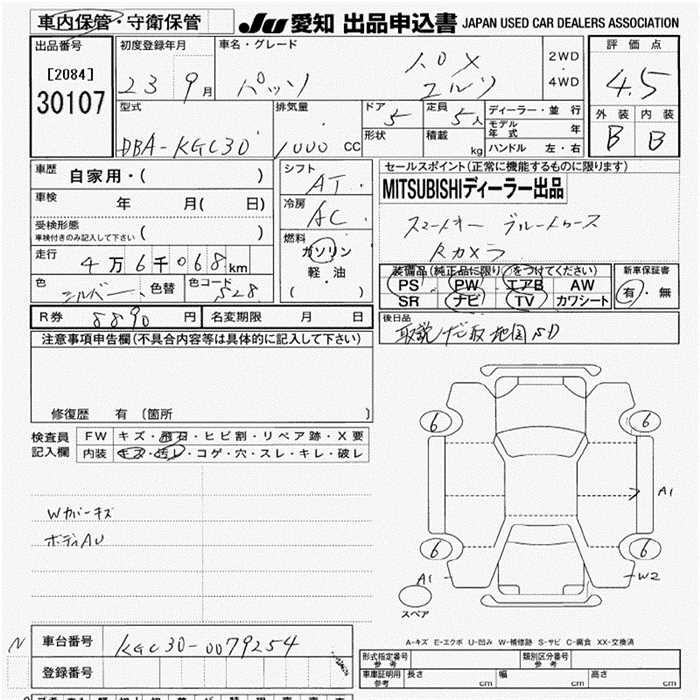 車内保管・守衛保管 JU 愛知 出品申込書 JAPAN USED CAR DEALERS ASSOCIATION
出品番号 初度登録年月 車名・グレード 評価点
[2084] 23 9月 パッソ 2WD・4WD 4.5
30107
型式 排気量 ドア 定員 ディーラー・並行 外装 内装
DBA-KGC30 1000 CC 5 5人 モデル年式 年 B B
形状 積載 kg ハンドル 左・右
車歴 自家用・( ) シフト AT セールスポイント(正常に機能するものに限ります)
MITSUBISHIディーラー出品
車検 年 月( 日) 冷房 AC
スマートキー ブルートゥース
受検形態 車検付きのみ記入して下さい ( )
Rカメラ
走行 4万6千068km 燃料 ガソリン
軽・油
( )
装備品(純正品に限り○をつけてください) 新車保証書
PS PW エアB AW 有・無
SR ナビ TV カワシート
色 シルバー 色替 色コード S28
R券 8890円 名変期限 月 日 後日品
取説 ナビ取 地図SD
注意事項申告欄(不具合内容等は具体的に記入して下さい)
修復歴 有 (箇所 )
検査員記入欄 FW キズ・飛石・ヒビ割・リペア跡・X要
内装 キズ・汚レ・コゲ・穴・スレ・キレ・破レ
6 6
A1
Wカバーキズ
ボディAU
6 6
A1 W2
スペア
A-キズ E-エクボ U-凹み W-補修跡 S-サビ C-腐食 XX-交換済
N 車台番号 KGC30-0079254
登録番号
形式指定番号 参考 類別区分番号 参考
車庫証明用 参考 長さ cm 幅 cm 高さ cm